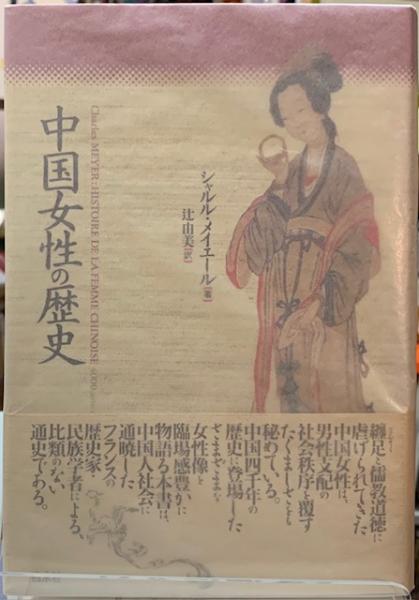 中国女性の歴史
Charles MEYER : HISTOIRE DE LA FEMME CHINOISE
シャルル・メイエール[著]
辻由美[訳]
纏足と儒教道徳に
虐げられてきた
中国女性は、
男性支配の
社会秩序を覆す
たくましさをも
秘めている。
中国四千年の
歴史に登場した
さまざまな
女性像を
臨場感豊かに
物語る本書は、
中国人社会に
通暁した
フランスの
歴史家・
民族学者による、
比類のない
通史である。